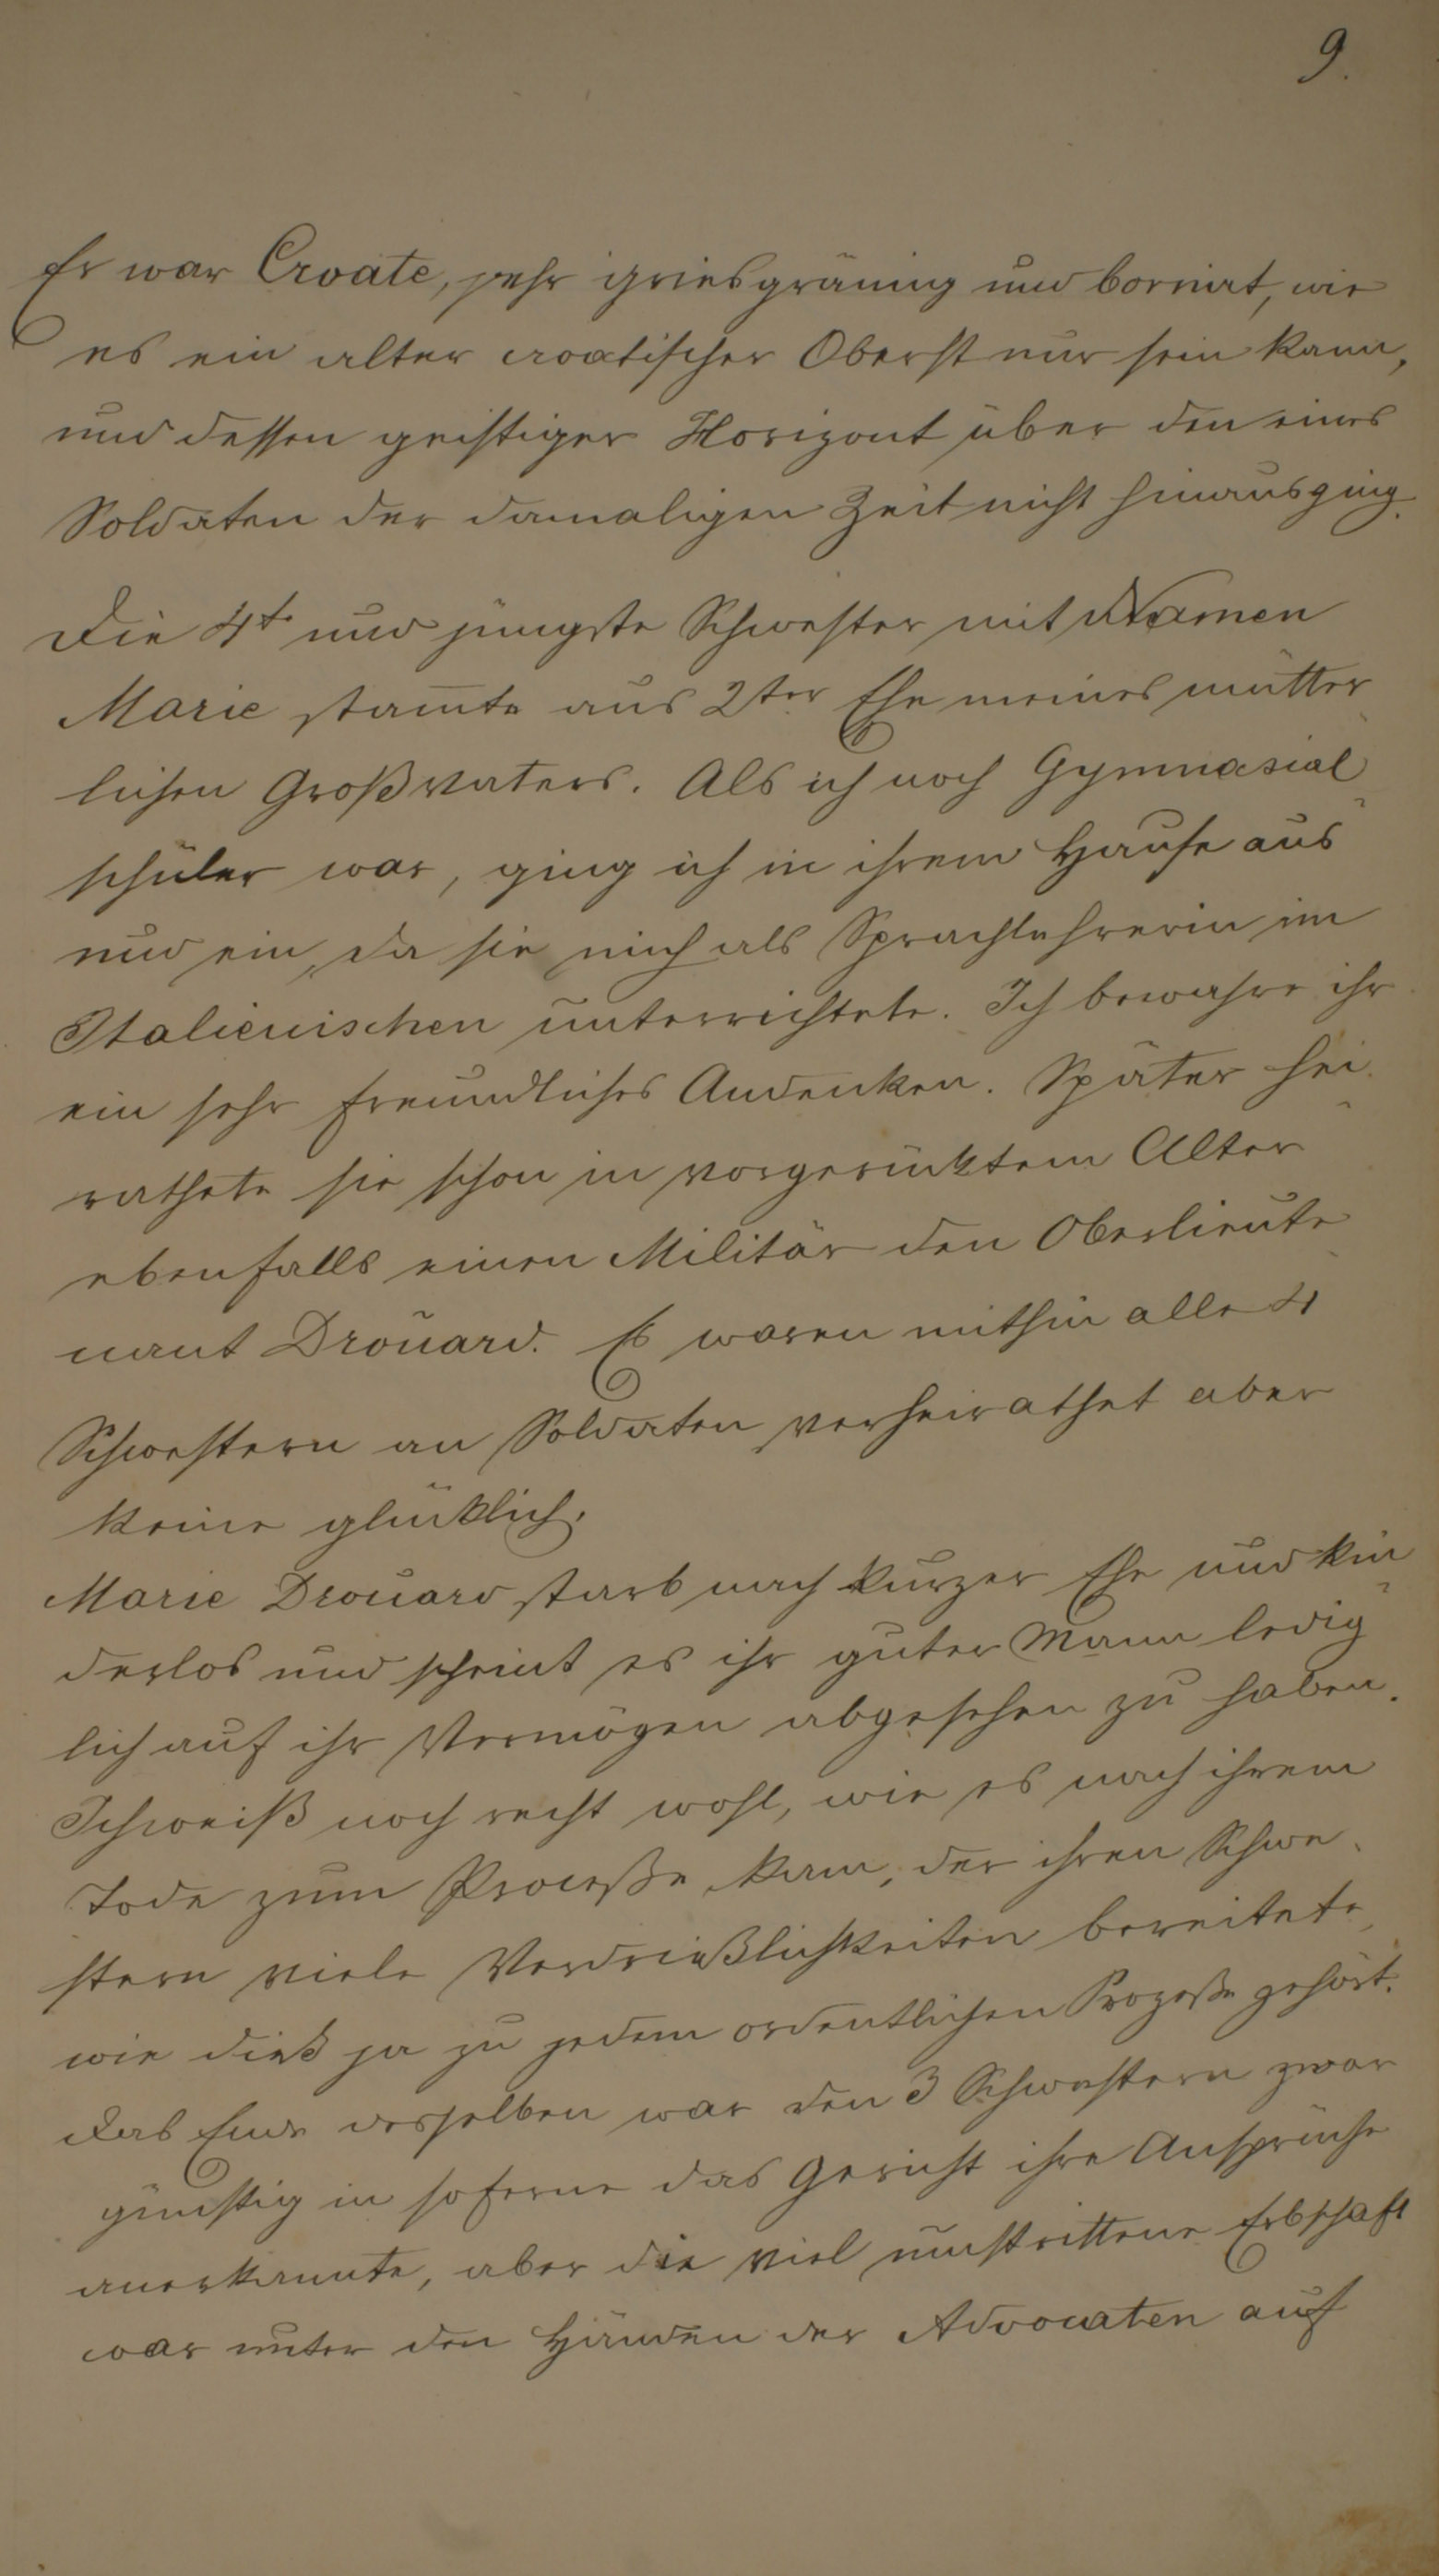 9.
Er war Croate, sehr griesgrämig und bornirt, wie
es ein alter croatischer Oberst nur sein kann,
und dessen geistiger Horizont über den eines
Soldaten der damaligen Zeit nicht hinausging.
Die 4te und jüngste Schwester mit Namen
Marie stam̅te aus 2ter Ehe meines mütter
lichen Großvaters. Als ich noch Gymnasial
schüler war, ging ich in ihrem Hause aus
und ein, da sie mich als Sprachlehrerin im
Italienischen unterrichtete. Ich bewahre ihr
ein sehr freundliches Andenken. Später hei
rathete sie schon in vorgerücktem Alter
ebenfalls einen Militär den Oberlieute
nant Drouard. Es waren mithin alle 4
Schwestern an Soldaten verheirathet aber
keine glücklich.
Marie Drouard starb nach kurzer Ehe und kin
derlos und scheint es ihr guter Mann ledig
lich auf ihr Vermögen abgesehen zu haben.
Ich weiß noch recht wohl, wie es nach ihrem
Tode zum Proceße kam, der ihren Schwe
stern viele Verdrießlichkeiten bereitete,
wie dieß ja zu jedem ordentlichen Prozeße gehört.
Das Ende desselben war den 3 Schwestern zwar
günstig in soferne das Gericht ihre Ansprüche
anerkannte, aber die viel umstrittene Erbschaft
war unter den Händen der Advocaten auf